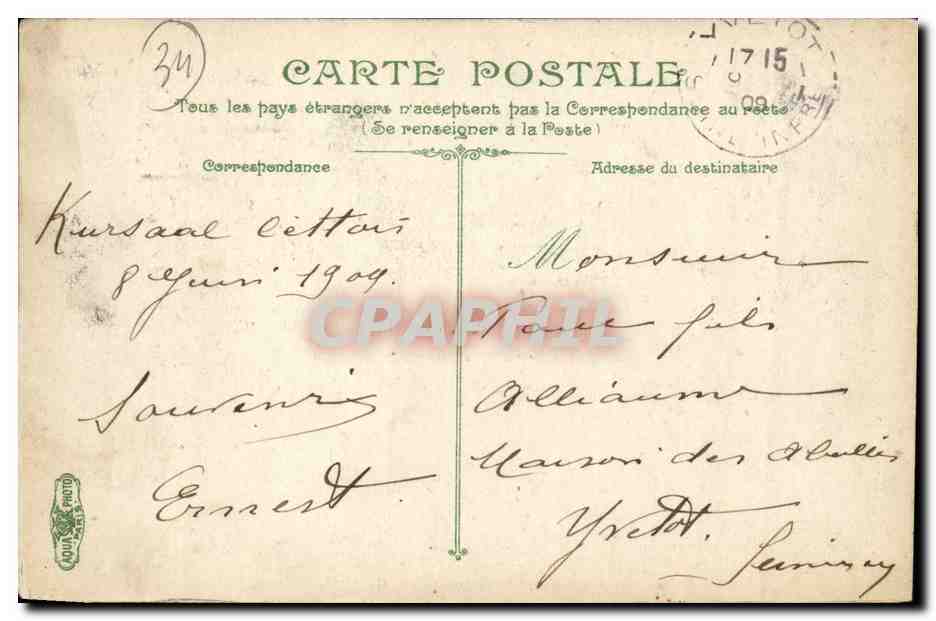 34
CARTE POSTALE
Tous les pays étrangers n'acceptent pas la Correspondance au recto
(Se renseigner à la Poste)
YVETOT
17 15
09
SEINE INFRE
Correspondance
Adresse du destinataire
Kursaal Cettois
8 Juin 1909.
Souvenir
Ernest
Monsieur
Paul fils
Alliaume
Maison des Abeilles
Yvetot.
CPAPHIL
AQUA PHOTO
PARIS